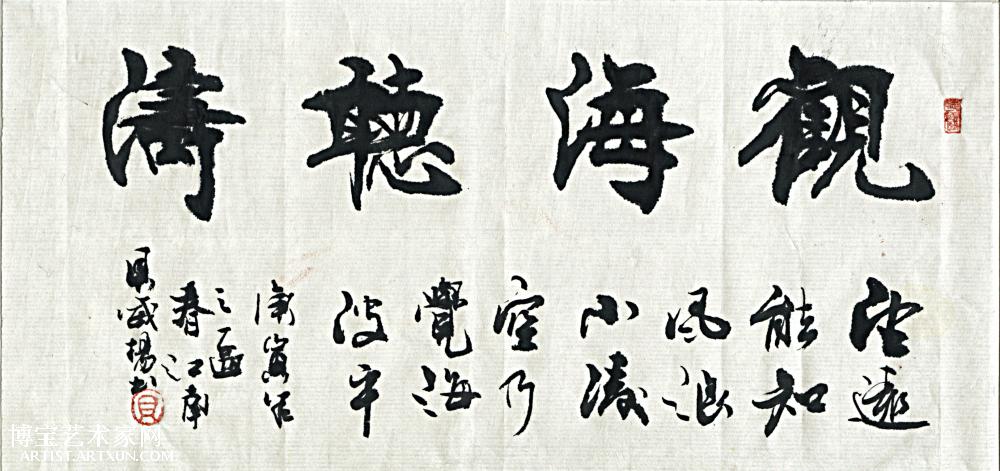 觀海聽濤
望遠
能知
风浪
小凌
空乃
覺海
波平
庚寅
之
春江南
貝威楊书
博宝艺术家网
ARTIST.ARTXUN.COM